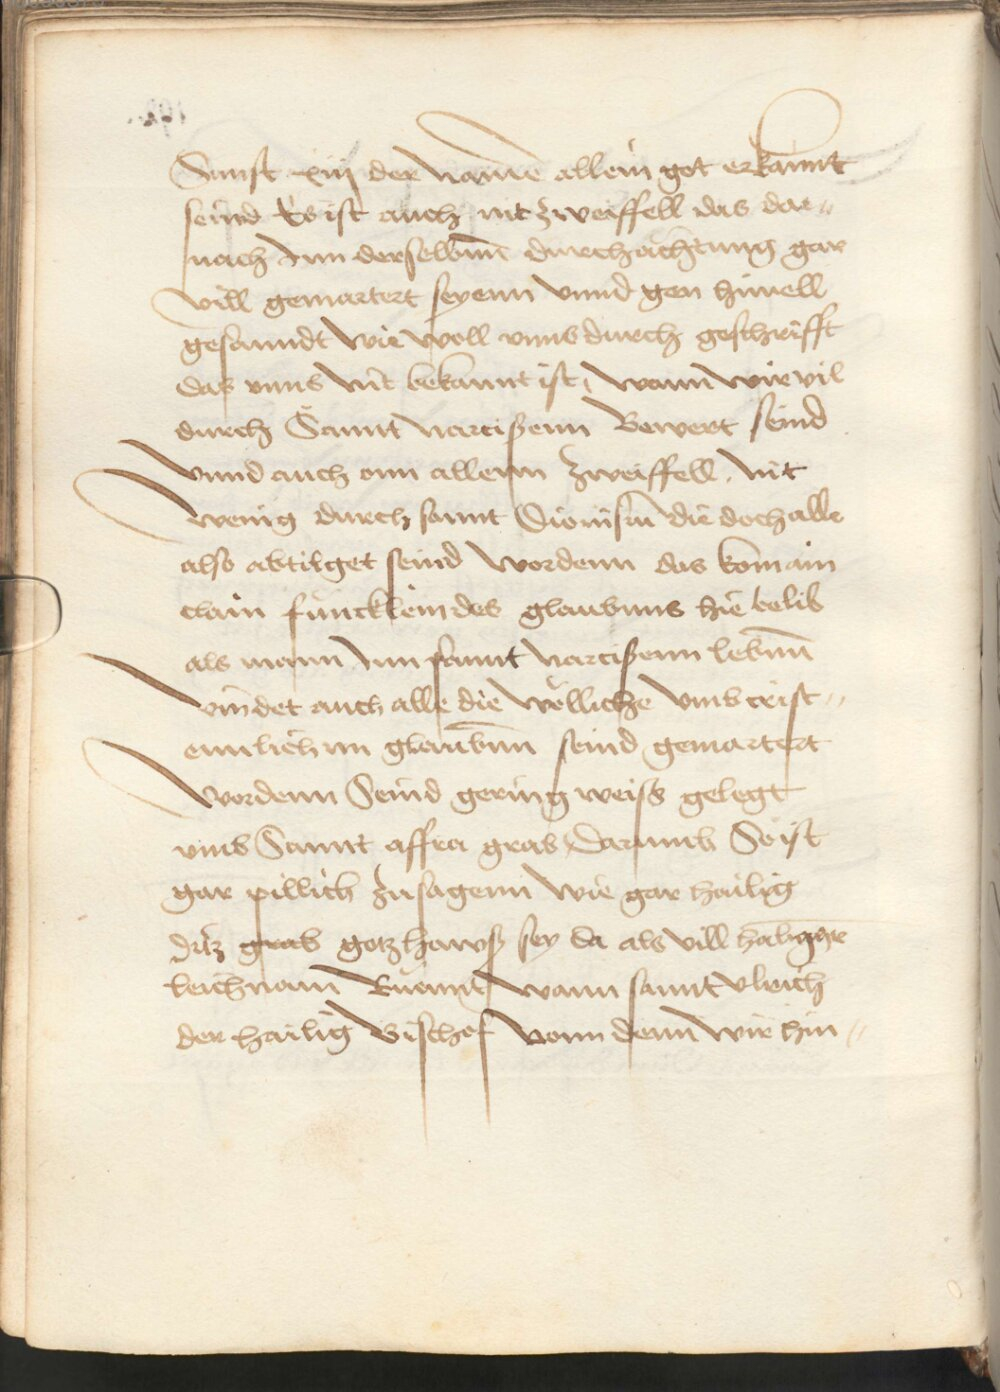 Sunst xiij der namē allein got erkannt
seind Es ist auch nit zweiffell das dar„
nach Inn derselbīnn durchächtung gar
vill gemartert seyenn vnnd gen himell
gesanndt wie woll vnns durch geschrifft
das vnns nit bekannt ist, wann wir vil
durch Sannt narcissenn Bewert seind
vnnd auch onn allenn zweiffell. nit
wenig durch sannt Dionisiu die doch alle
also abtilget seind wordenn das kom ain
clain füncklein des glaubnns hie belib
als mann Inn sannt narcissenn lebnn
vindet auch alle die wölliche vmb crist„
ennlichnn glaubnn seind gemartert
wordenn Seind gering weiss gelegt
vmb Sannt affra grab Darumb So ist
gar pillich zusagenn wie gar hailig
ditz grab gotzhawss sey da als vill hailiger
leichnam Ruennt wann sannt vlrich
der hailig Bischof vonn denn wir hin„